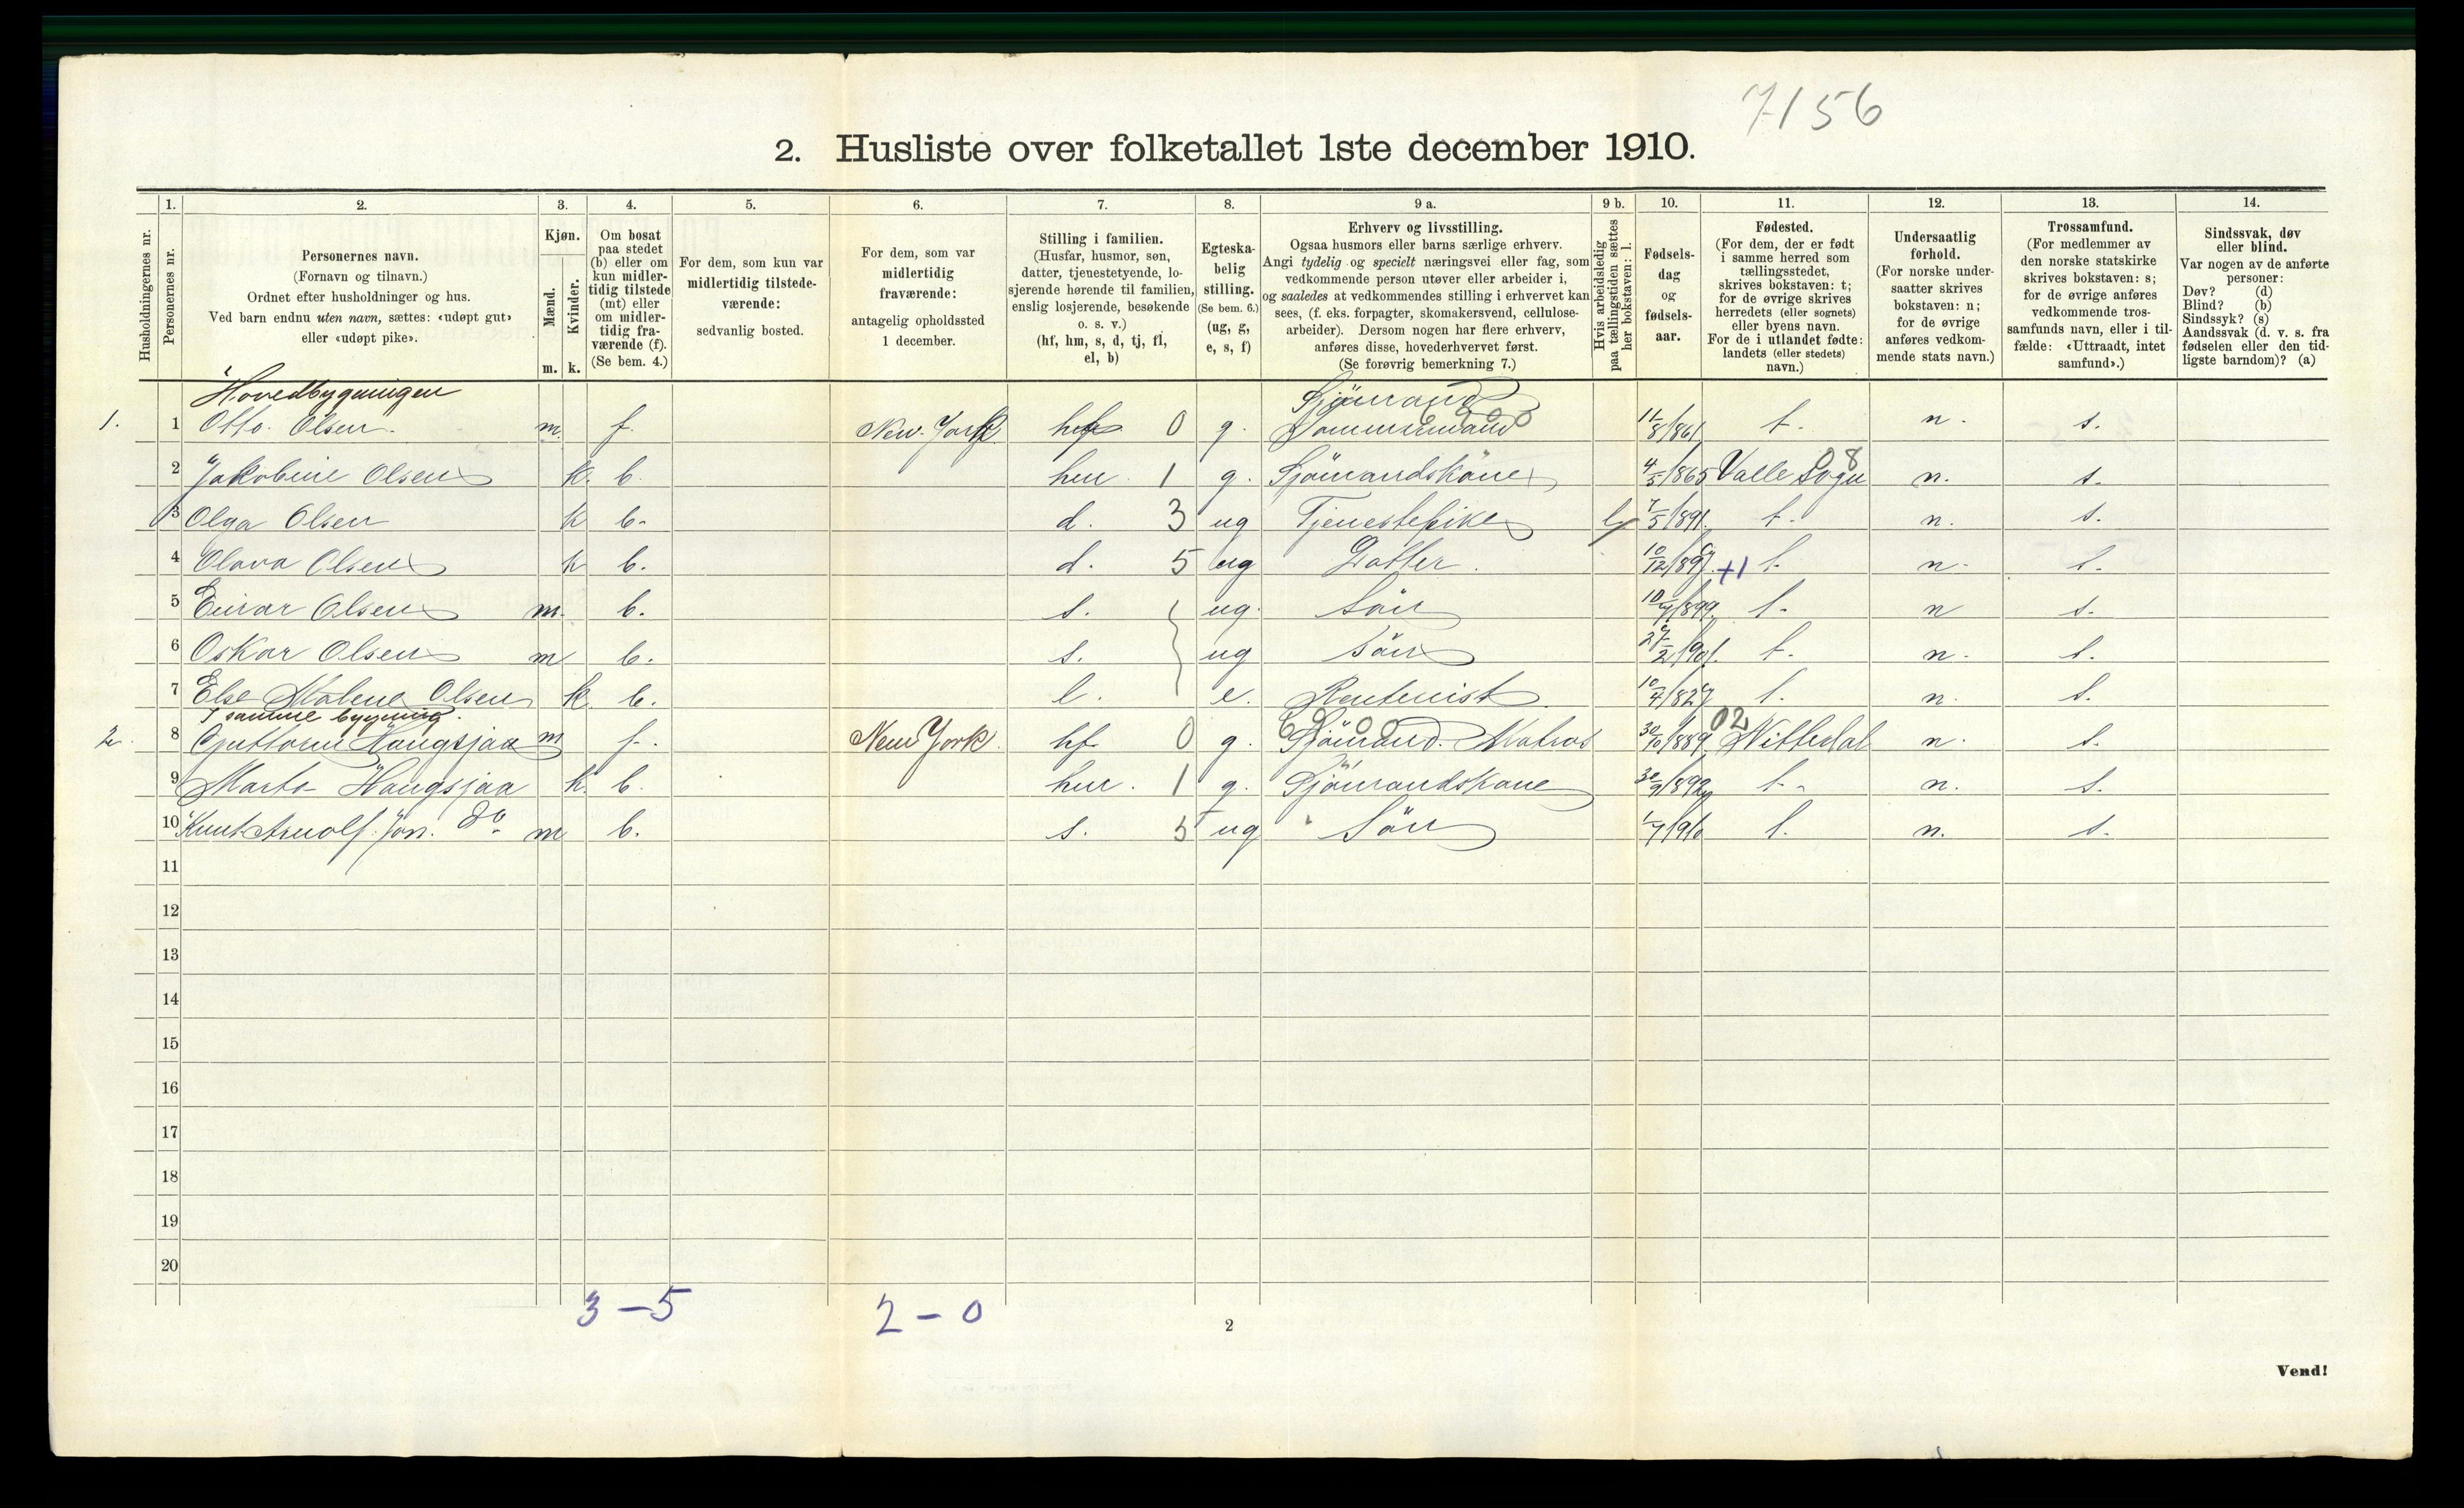 7156
2. Husliste over folketallet 1ste december 1910.
Husholdningernes nr.
1. Personernes nr.
2. Personernes navn.
(Fornavn og tilnavn.)
Ordnet efter husholdninger og hus.
Ved barn endnu uten navn, sættes: «udøpt gut»
eller «udøpt pike».
3. Kjøn.
Mænd. m.
Kvinder. k.
4. Om bosat
paa stedet
(b) eller om
kun midler-
tidig tilstede
(mt) eller
om midler-
tidig fra-
værende (f).
(Se bem. 4.)
5. For dem, som kun var
midlertidig tilstede-
værende:
sedvanlig bosted.
6. For dem, som var
midlertidig
fraværende:
antagelig opholdssted
1 december.
7. Stilling i familien.
(Husfar, husmor, søn,
datter, tjenestetyende, lo-
sjerende hørende til familien,
enslig losjerende, besøkende
o. s. v.)
(hf, hm, s, d, tj, fl,
el, b)
8. Egteska-
belig
stilling.
(Se bem. 6.)
(ug, g,
e, s, f)
9 a. Erhverv og livsstilling.
Ogsaa husmors eller barns særlige erhverv.
Angi tydelig og specielt næringsvei eller fag, som
vedkommende person utøver eller arbeider i,
og saaledes at vedkommendes stilling i erhvervet kan
sees, (f. eks. forpagter, skomakersvend, cellulose-
arbeider). Dersom nogen har flere erhverv,
anføres disse, hovederhvervet først.
(Se forøvrig bemerkning 7.)
9 b. Hvis arbeidsledig
paa tællingstiden sættes
her bokstaven: l.
10. Fødsels-
dag
og
fødsels-
aar.
11. Fødested.
(For dem, der er født
i samme herred som
tællingsstedet,
skrives bokstaven: t;
for de øvrige skrives
herredets (eller sognets)
eller byens navn.
For de i utlandet fødte:
landets (eller stedets)
navn.)
12. Undersaatlig
forhold.
(For norske under-
saatter skrives
bokstaven: n;
for de øvrige
anføres vedkom-
mende stats navn.)
13. Trossamfund.
(For medlemmer av
den norske statskirke
skrives bokstaven: s;
for de øvrige anføres
vedkommende tros-
samfunds navn, eller i til-
fælde: «Uttraadt, intet
samfund».)
14. Sindssvak, døv
eller blind.
Var nogen av de anførte
personer:
Døv? (d)
Blind? (b)
Sindssyk? (s)
Aandssvak (d. v. s. fra
fødselen eller den tid-
ligste barndom)? (a)
Hovedbygningen Sjömand
1. 1 Otto Olsen. m. f. New. York hf 0 g. 11/8 1861 t. n. s.
2 Jakobine Olsen k. b. hm. 1 g. Sjömandskone 4/5 1865 Valle Sogn 08 n. s.
3 Olga Olsen k b. d. 3 ug Tjenestepike l 7/5 1891 t. n. s.
4 Olava Olsen k b. d. 5 ug Datter. 10/12 1897 +1 t. n. s.
5 Einar Olsen m. b. s. ug. Sön 1899 t. n s.
6 Oskar Olsen m b. s. ug Sön 27/2 1901. t. n. s.
7 Else Malene Olsen k. b. l. e. Rentenist 10/4 1827 t. n. s.
I samme bygning.
2. 8 Guttorm Haugsjaa m f. New York hf 0 g. Sjömand. Matros 30/10 1889 02 Hitterdal n. s.
9 Marta Haugsjaa k. b. hm. 1 g. Sjömandskone 30/9 1892 t. n. s.
10 Knut Arnolf Jon. do m b. s. 5 ug Sön 1/7 1910 t. n. s.
11
12
13
14
15
16
17
18
19
20
3 – 5 2 – 0
2
Vend!